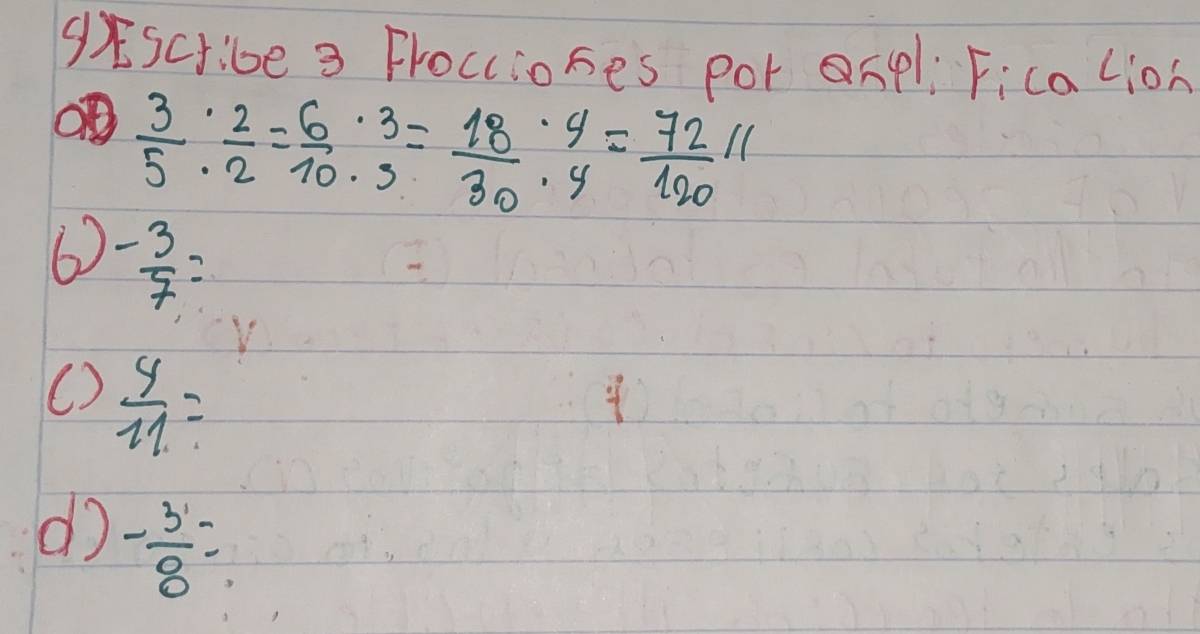 4) Escribe 3 Fracciones por Ampli Ficacion
a) 3/5 · 2/2 = 6/10 · 3/3 = 18/30 · 4/4 = 72/120 //
b) -3/7 =
c) 4/11 =
d) -3/8 =